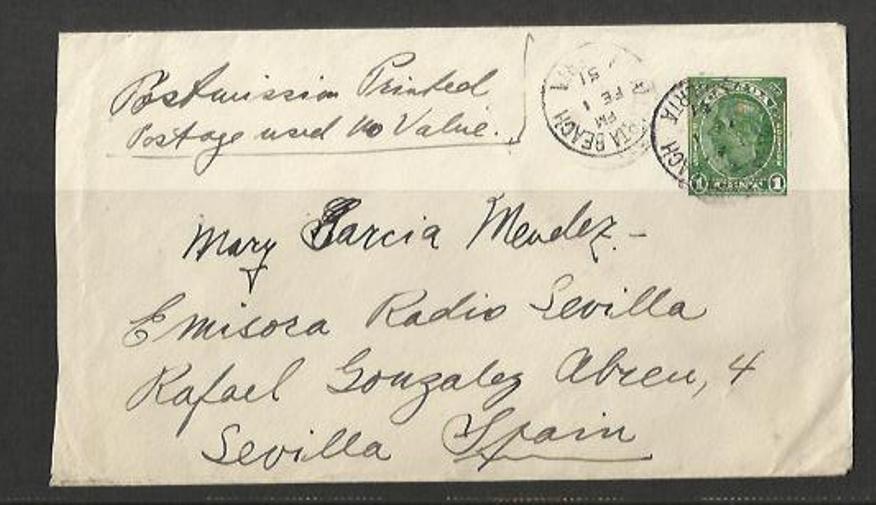 Postmission Printed
Postage used no Value.
BEACH
PM
FE 1
51
1 1
Mary Garcia Mendez.-
Emisora Radio Sevilla
Rafael Gonzalez Abreu, 4
Sevilla Spain